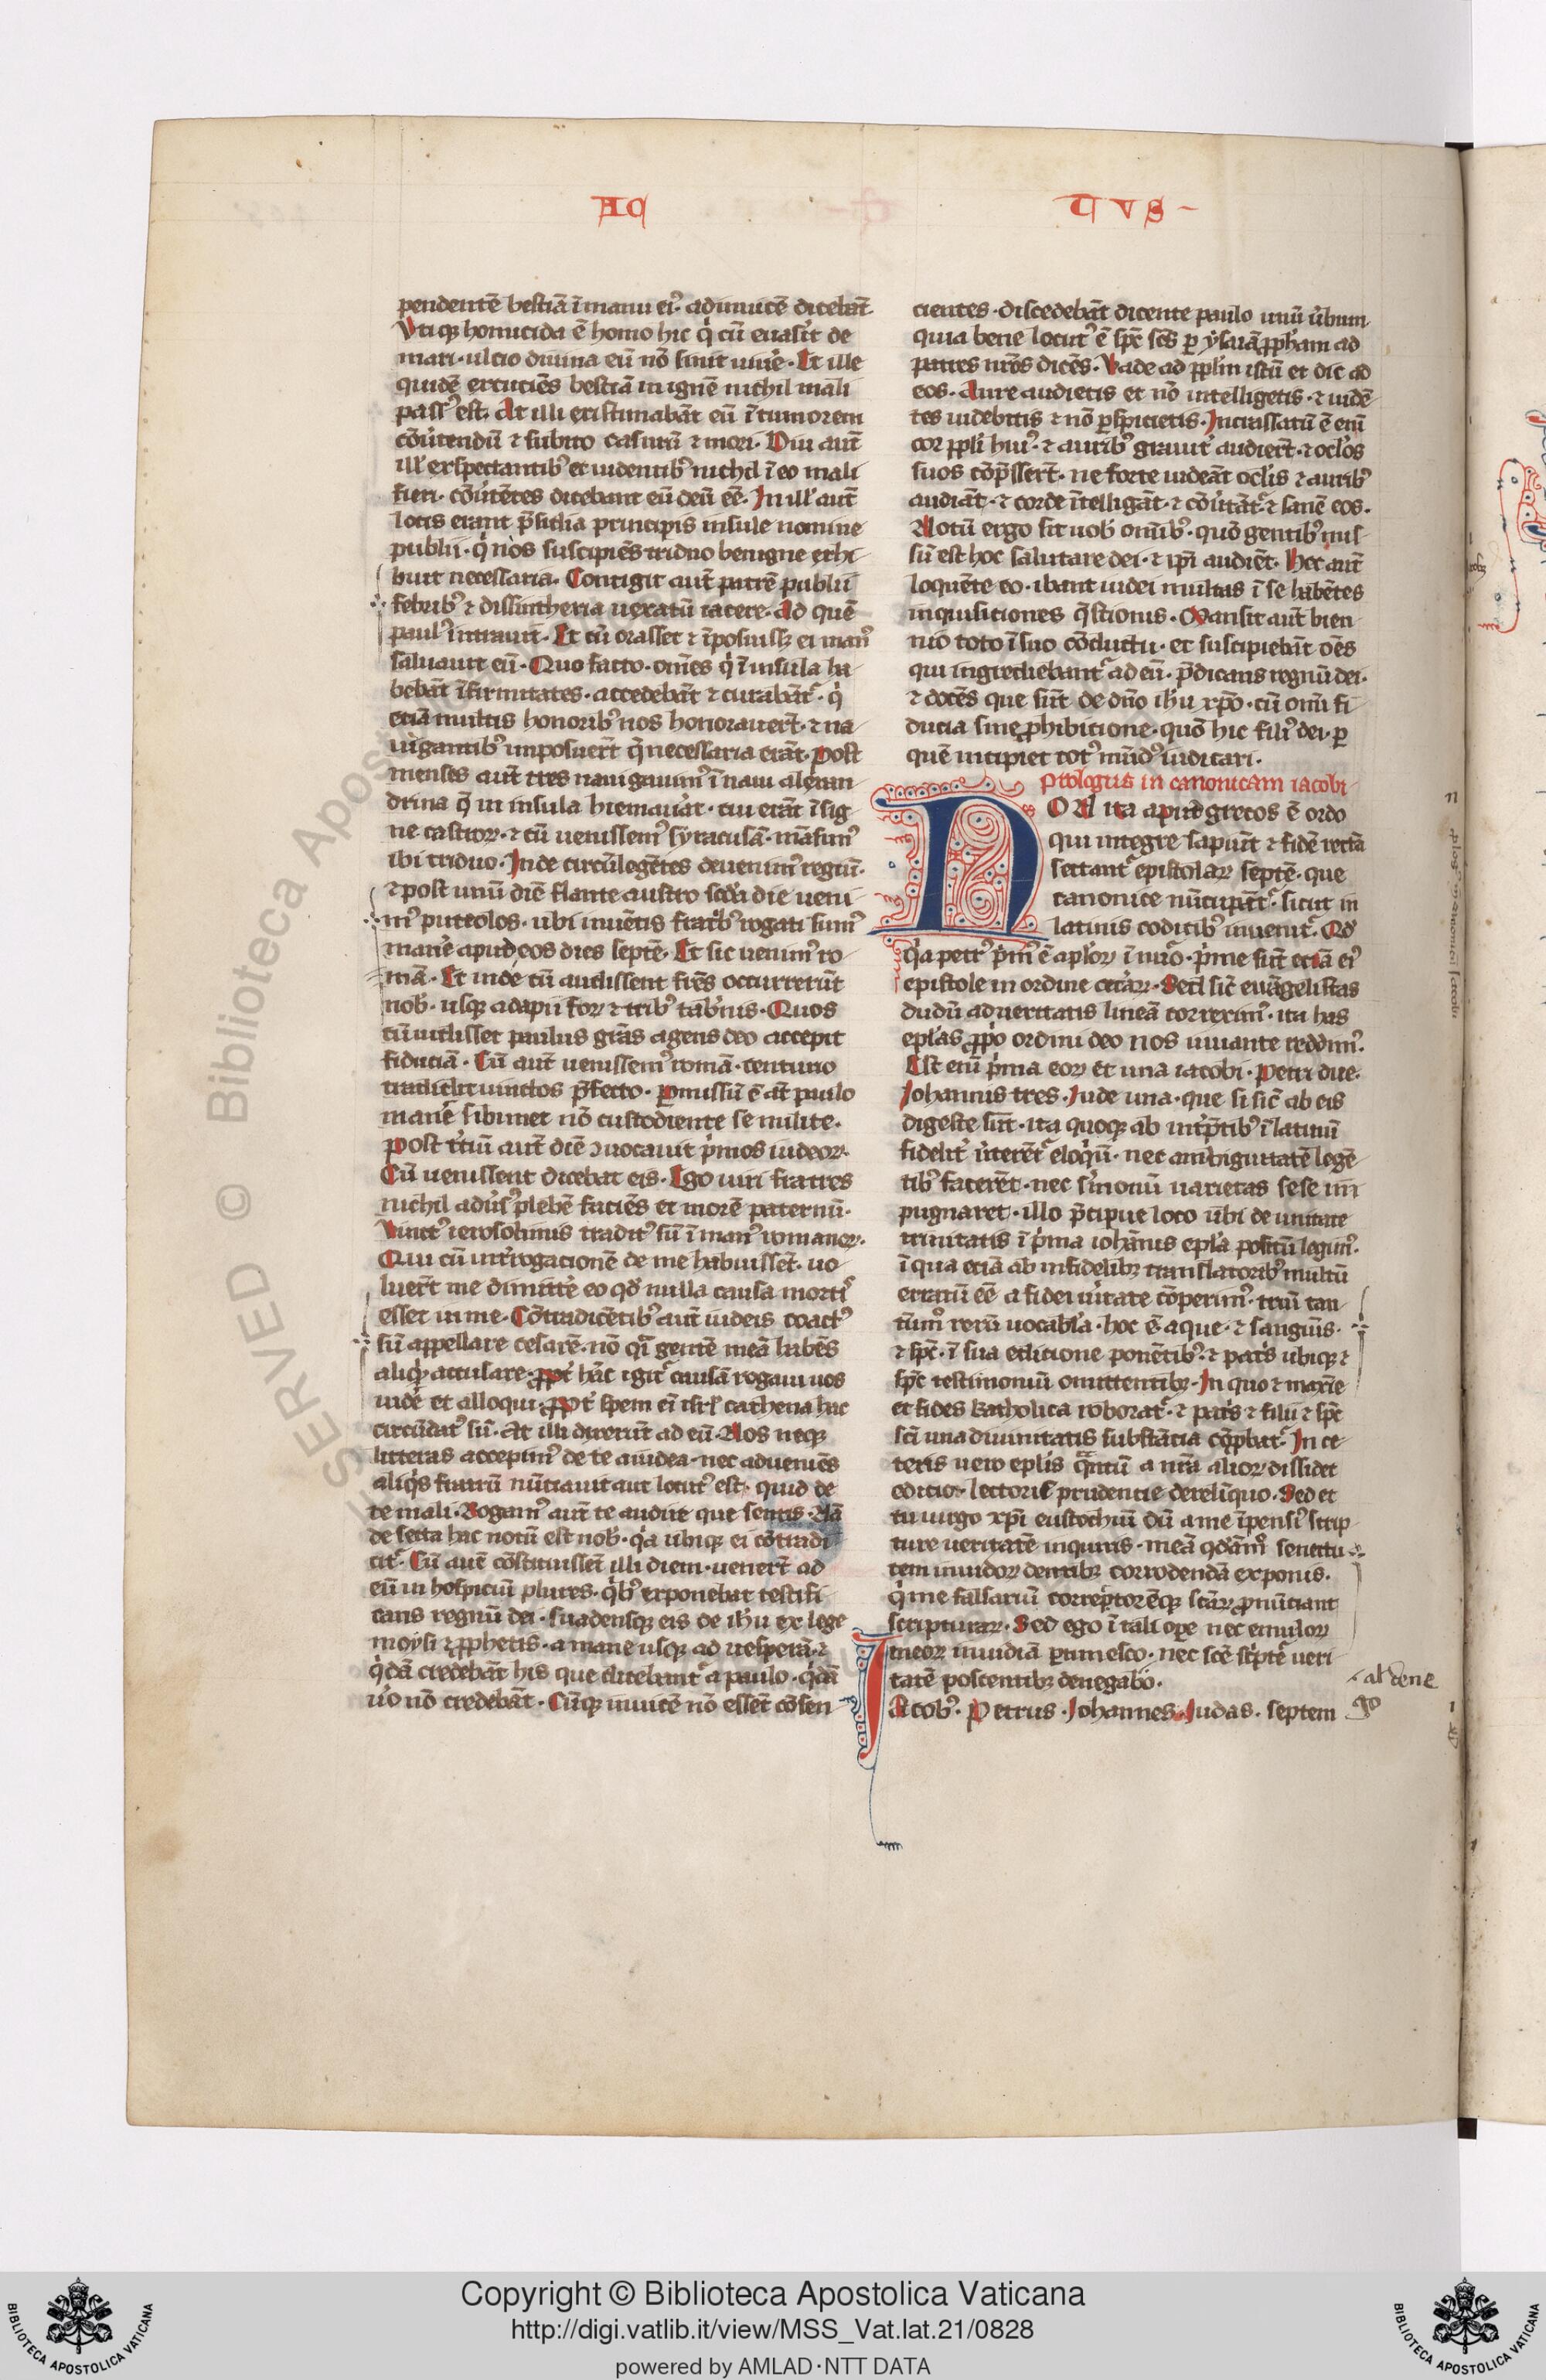 AC
TVS
pendentē bestiā ī manu eiꝰ adinuicē dicebāt
Vtiqꝫ homicida ē homo hic q̇ cū euasit de
mari · ulcio diuina eū nō sinit uiu̾e · Et ille
quidē excuciēs bestiā in ignē nichil mali
passꝰ est · At illi existimabāt eū ī tumorem
cōu̾tendū ⁊ subito casurū ⁊ mori · Diu aut̄
ill̾ exspectantibꝰ et uidentibꝰ nichil ī eo mali
fieri · cōu̾tētes dicebant eū deū eē · In ill̾ aut̄
locis erant p̄sidia principis insule nomine
publii · q̇ nos suscipiēs triduo benigne exhi
buit necessaria · Contigit aut̄ patrē publii
febribꝰ ⁊ dissintheria uexatū iacere · Ad quē
paulꝰ intrauit · Et cū orasset ⁊ īposuissꝫ ei manꝰ
saluauit eū · Quo facto · om̄es q̇ ī insula ha
bebāt īfirmitates · accedebāt ⁊ curabāt᷑ · q̇
eciā multis honoribꝰ nos honorauer̄t · ⁊ na
uigantibꝰ imposuer̄t q̄ necessaria erāt · Post
menses aut̄ tres nauigauimꝰ ī naui alexan
drina q̄ in insula hiemau̾at · cui erāt īsig
ne castroꝝ · ⁊ cū uenissemꝰ syracusā · māsimꝰ
ibi triduo · Inde circūlegētes deuenimꝰ regiū ·
⁊ post unū diē flante austro scd̾a die ueni
mꝰ puteolos · ubi inuētis fratribꝰ rogati sumꝰ
man̾e apud eos dies septē · Et sic uenimꝰ ro
mā · Et inde cū audissent fr̄es occurrerūt
nob̾ · usqꝫ ad apii foꝝ ⁊ tribꝰ tab̾nis · Quos
cū uidisset paulus gr̄as agens deo accepit
fiduciā · Cū aut̄ uenissemꝰ romā · centurio
tradidit uinctos p̄fecto · Pmissū ē at̄ paulo
man̾e sibimet nō custodiente se milite ·
Post t̾ciū aut̄ diē ꝯuocauit p̾mos iudeoꝝ ·
Cū uenissent dicebat eis · Ego uiri fratres
nichil adu̾sꝰ plebē faciēs et morē paternū ·
Vinctꝰ ierosolimis traditꝰ sū ī manꝰ romanoꝝ ·
Qui cū int̾rogacionē de me habuisset̄ · uo
luer̄t me dimitt̾e eo qd̾ nulla causa mortiˢ
esset in me · Cōtradicētibꝰ aut̄ iudeis coactꝰ
sū appellare cesarē · nō q̄ gentē meā habēs
aliqd̾ accusare · ꝓpt̾ hāc igit᷑ causā rogaui uos
uid̾e et alloqui · ꝓpt̾ spem eī isrl̾ cathena hac
circūdatꝰ sū · At illi dixerūt ad eū · Nos neqꝫ
litteras accepimꝰ de te a iudea · nec adueniēs
aliq̇s fratrū nūtiauit aut locutꝰ est · quid de
te mali · Rogamꝰ aut̄ te audire que sentis · Nā
de secta hac notū est nob̾ · q̇a ubiqꝫ ei cōtradi
cit᷑ · Cū autē cōstituisset̄ illi diem · uener̄t ad
eū in hospiciū plures · q̇bꝰ exponebat testifi
cans regnū dei · suadensqꝫ eis de ih̄u ex lege
moysi ⁊ ꝓphetis · a mane usqꝫ ad uesperā · ⁊
q̇dā credebāt his que dicebant᷑ a paulo · q̇dā
u̾o nō credebāt · Cūqꝫ inuicē nō esset̄ cōsen
cientes · discedebāt dicente paulo unū u̾bum
quia bene locutꝰ ē sp̄c sc̄s ꝑ ysaiā ꝓpham ad
patres nr̄os dicēs · Vade ad ppl̾m istū et dic ad
eos · Aure audietis et nō intelligetis · ⁊ uidē
tes uidebitis ⁊ nō ꝑspicietis · Incrassatū ē enī
cor ppl̾i huiꝰ · ⁊ auribꝰ grauit̾ audier̄t · ⁊ ocl̾os
suos cōp̄sser̄t · ne forte uideāt ocl̾is ⁊ auribꝰ
audiāt · ⁊ corde ītelligāt · ⁊ cōu̾tāt᷑ ⁊ sanē eos ·
Notū ergo sit uob̾ om̄ibꝰ · quō gentibꝰ mis
sū est hoc salutare dei · ⁊ ip̄i audiēt · Hec aut̄
loquēte eo · ibant iudei multas ī se habētes
inquisitiones q̄stionis · Mansit aut̄ bien
nio toto ī suo cōductu · et suscipiebāt oēs
qui ingrediebant᷑ ad eū · p̄dicans regnū dei ·
⁊ docēs que sūt de dn̄o ih̄u xp̄o · cū omi fi
ducia sine ꝓhibitione · quō hic filiꝰ dei · ꝑ
quē incipiet totꝰ mūdꝰ iudicari ·
Prologus in canonicam iacobi
NON ita apud grecos ē ordo
qui integre sapiūt ⁊ fidē rectā
sectant᷑ epistolaꝝ septē · que
canonice nūcupāt᷑ · sicut in
latinis codicibꝰ inuenit᷑ · Qd̾
q̇a petrꝰ p̾mꝰ ē ap̄loꝝ ī nūo · p̾me sūt eciā eiꝰ
epistole in ordine cet̾aꝝ · Sed sic̄ euāgelistas
dudū ad ueritatis lineā correximꝰ · ita has
epl̾as ꝓpo ordini deo nos iuuante reddimꝰ ·
Est enī p̾ma eoꝝ et una iacobi · Petri due ·
Johannis tres · Jude una · que si sic̄ ab eis
digeste sūt · ita quoqꝫ ab int̾p̄tibꝰ ī latinū
fidelit̾ u̾terēt᷑ eloq̇ū · nec ambiguitatē legē
tibꝰ facerēt · nec s̾monū uarietas sese im
pugnaret · illo p̄cipue loco ubi de unitate
trinitatis ī p̾ma iohānis epl̾a positū legimꝰ ·
ī qua eciā ab infidelibꝫ translatoribꝰ multū
erratū eē a fidei u̾itate cōperimꝰ · triū tan
tūmꝰ rerū uocabl̾a · hoc ē aque · ⁊ sanguis ·
⁊ sp̄c · ī sua editione ponētibꝰ · ⁊ pat̾s ubiqꝫ ⁊
sp̄c testimoniū omittentibꝫ · In quo ⁊ maxīe
et fides katholica roborat᷑ · ⁊ pat̾s ⁊ filii ⁊ sp̄c
sc̄i una diuinitatis substācia cōꝓbat᷑ · In ce
teris uero epl̾is q̄ntū a nr̄a alioꝝ dissidet
editio · lectoris prudentie derelīquo · Sed et
tu uirgo xp̄i eustochiū dū a me īpensiꝰ scrip
ture ueritatē inquiris · meā qdāmꝰ senectu
tem inuidoꝝ dentibꝫ corrodendā exponis ·
q̇ me falsariū correptorēqꝫ scāꝝ ꝓnūciant
scripturaꝝ · Sed ego ī tali oꝑe nec emuloꝝ
meoꝝ inuidiā ꝑtimesco · nec scē sc̾pt᷑e ueri
tatē poscentibꝫ denegabo ·
al̾ dene
go
Jacobꝰ · Petrus · Johannes · Judas · septem
Copyright © Biblioteca Apostolica Vaticana
http://digi.vatlib.it/view/MSS_Vat.lat.21/0828
powered by AMLAD·NTT DATA
BIBLIOTECA APOSTOLICA VATICANA
BIBLIOTECA APOSTOLICA VATICANA